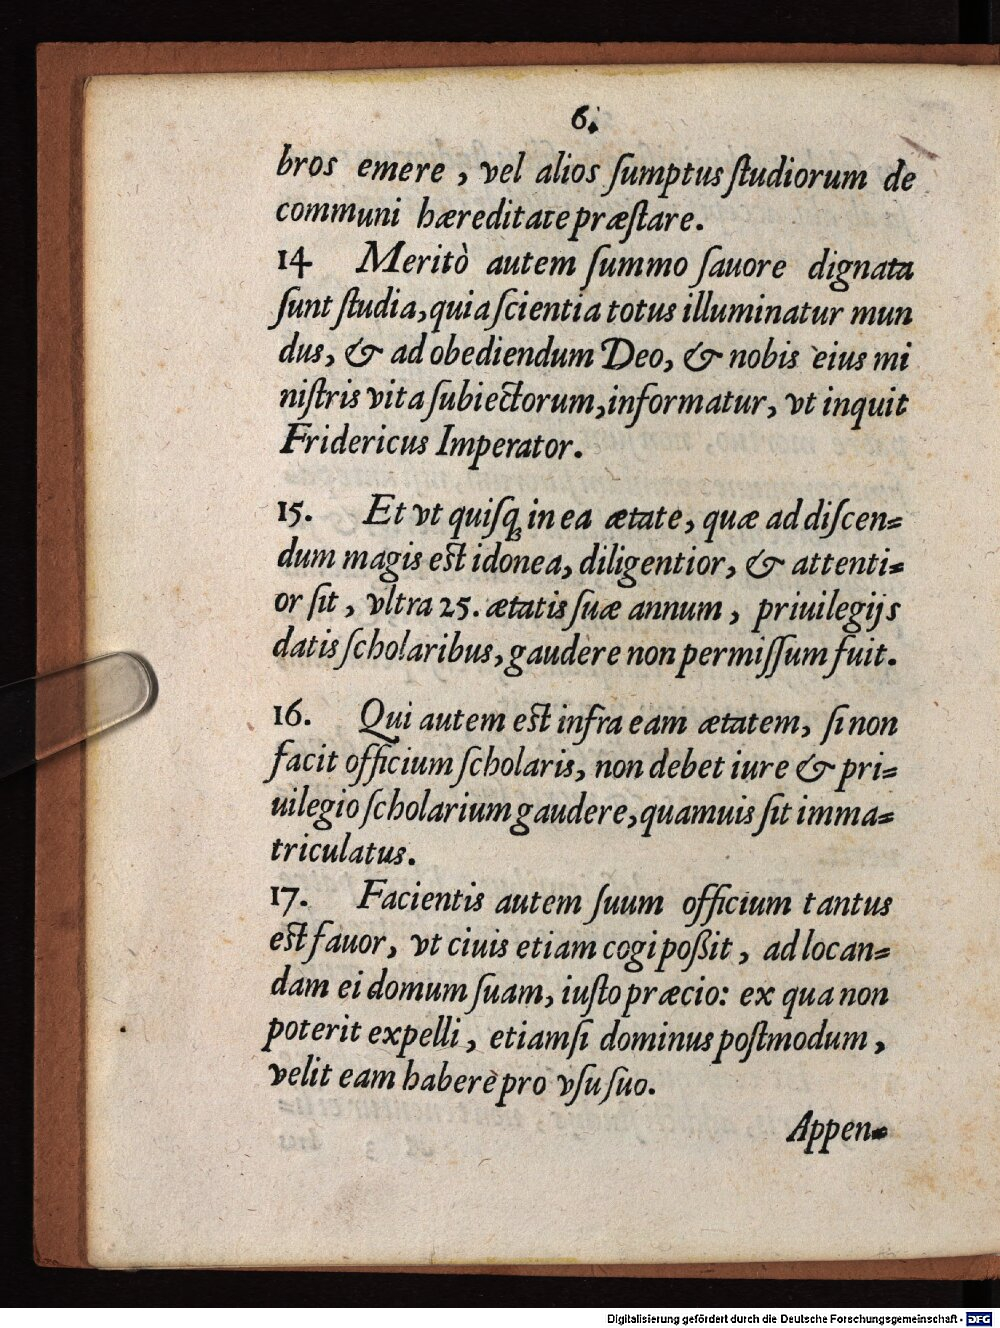 6.
bros emere, vel alios ſumptus ſtudiorum de
communi hæreditate præſtare.
14 Meritò autem ſummo ſauore dignata
ſunt ſtudia, quia ſcientia totus illuminatur mun
dus, & ad obediendum Deo, & nobis eius mi
niſtris vita ſubiectorum, informatur, vt inquit
Fridericus Imperator.
15. Et vt quiſq; in ea ætate, quæ ad diſcen=
dum magis eſt idonea, diligentior, & attenti=
or ſit, vltra 25. ætatis ſuæ annum, priuilegijs
datis ſcholaribus, gaudere non permiſſum fuit.
16. Qui autem eſt infra eam ætatem, ſi non
facit officium ſcholaris, non debet iure & pri=
uilegio ſcholarium gaudere, quamuis ſit imma=
triculatus.
17. Facientis autem ſuum officium tantus
eſt fauor, vt ciuis etiam cogi poßit, ad locan=
dam ei domum ſuam, iuſto præcio: ex qua non
poterit expelli, etiamſi dominus poſtmodum,
velit eam habere pro vſu ſuo.
Appen=
Digitalisierung gefördert durch die Deutsche Forschungsgemeinschaft - DFG